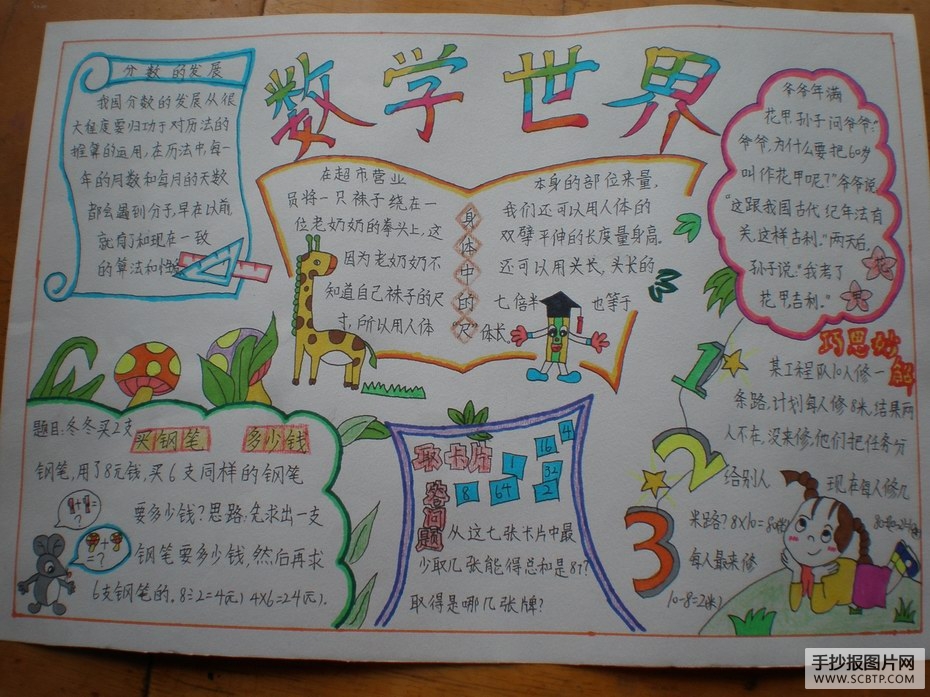 数学世界
分数的发展
我国分数的发展从很
大程度要归功于对历法的
推算的运用,在历法中,每一
年的月数和每月的天数
都会遇到分子,早在以前
就有了和现在一致
的算法和
身体中的“尺”
在超市营业
员将一只袜子绕在一
位老奶奶的拳头上,这
因为老奶奶不
知道自己袜子的尺
寸,所以用人体
本身的部位来量,
我们还可以用人体的
双臂平伸的长度量身高。
还可以用头长,头长的
七倍半也等于
体长。
爷爷年满
花甲,孙子问爷爷:“
爷爷,为什么要把60岁
叫作花甲呢?”爷爷说
“这跟我国古代纪年法有
关,这样吉利。”两天后,
孙子说:“我考了
花甲,吉利。”
巧思妙解
某工程队10人修一
条路,计划每人修8米,结果两
人不在,没来修,他们把任务分
给别人 现在每人修几
米路?8×10=80
每人最来修
10-8=2(米)
1
2
3
买钢笔 多少钱
题目:冬冬买2支
钢笔,用了8元钱,买6支同样的钢笔
要多少钱?思路:先求出一支
钢笔要多少钱,然后再求
6支钢笔的。8÷2=4(元) 4×6=24(元).
+
=?
卡片
答问题
1
16
4
8
64
32
2
从这七张卡片中最
少取几张能得总和是87?
取得是哪几张牌?
手抄报图片网
WWW.SCBTP.COM